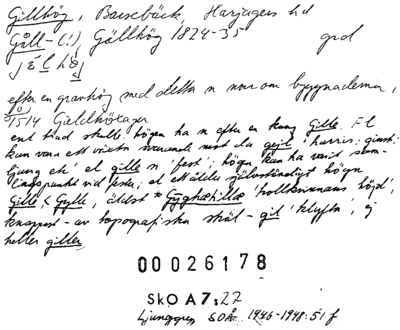 Gillhög, Barsebäck, Harjagers hd
Gåll- (!), Göllhög 1824-35 grd
efter en gravhög med detta n norr om byggnaderna,
1514 Gieldhöxager
enl trad skulle högen ha n efter en kung Gille. F l
kan vara ett växtn svarande mot da geil 'harris; ginst;
ljung etc' el gille n 'fest'; högen kan ha varit sam-
lingspunkt vid fester, el ett äldre självständigt högn
Gille, < Gylle, äldst *Gyghæhillæ 'trollkvinnans höjd',
knappast - av topografiska skäl - gil 'klyfta', ej
heller gilder
00026178
SkO A7:27
Ljunggren SOÅ 1946-1948:51 f